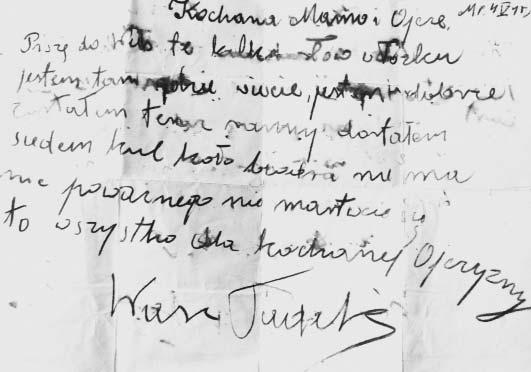 Kochana Mamo i Ojcze.
Piszę do Was te kilka słów w łóżku
jestem tam gdzie wiecie, jestem dobrze
zostałem ranny dostałem
siedem kul koło biodra nie ma
nic poważnego nie martwcie się
to wszystko dla kochanej Ojczyzny
Wasz